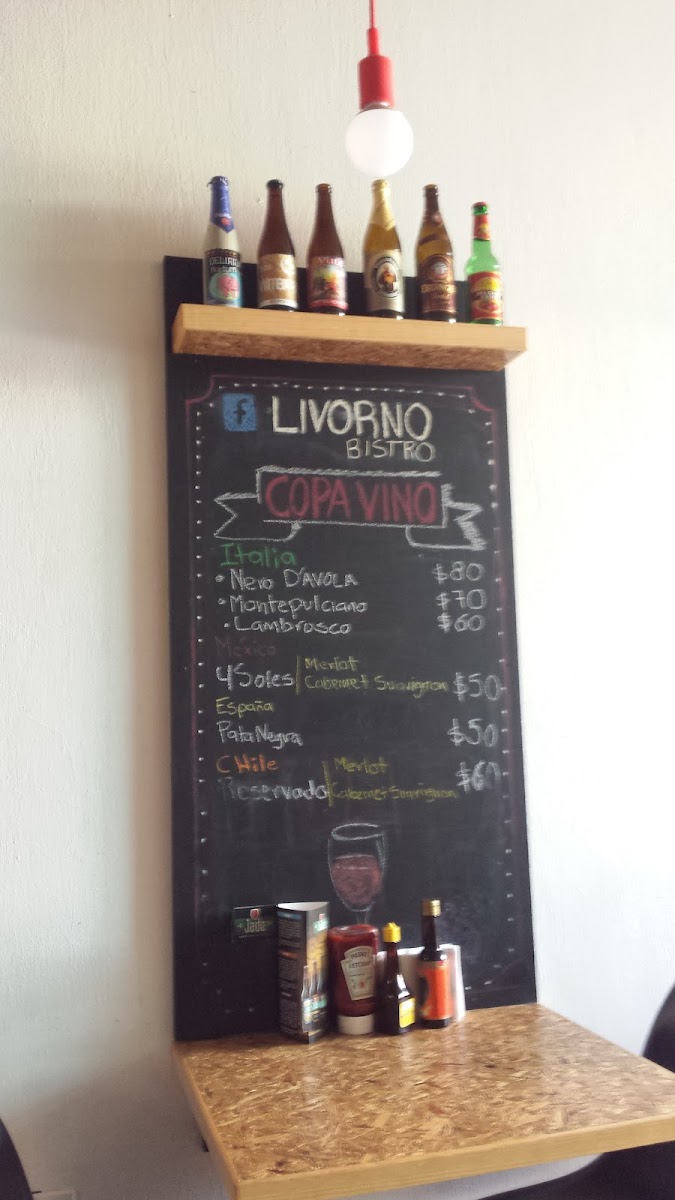 DELIRIUM
f LIVORNO
BISTRO
COPA VINO
Italia
• Nero D'AVOLA $80
• Montepulciano $70
• Lambrosco $60
México
4 Soles / Merlot
Cabernet Sauvignon $50
España
Pata Negra $50
CHile
Reservado / Merlot
Cabernet Sauvignon $60
Jade
HEINZ
KETCHUP